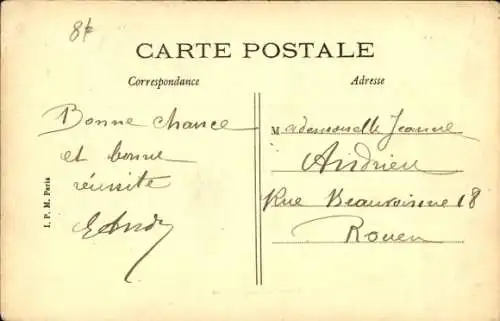 8f
CARTE POSTALE
Correspondance
Adresse
Bonne chance
et bonne
réussite
Mademoiselle Jeanne
Andrieu
Rue Beauvoisine 18
Rouen
I. P. M. Paris